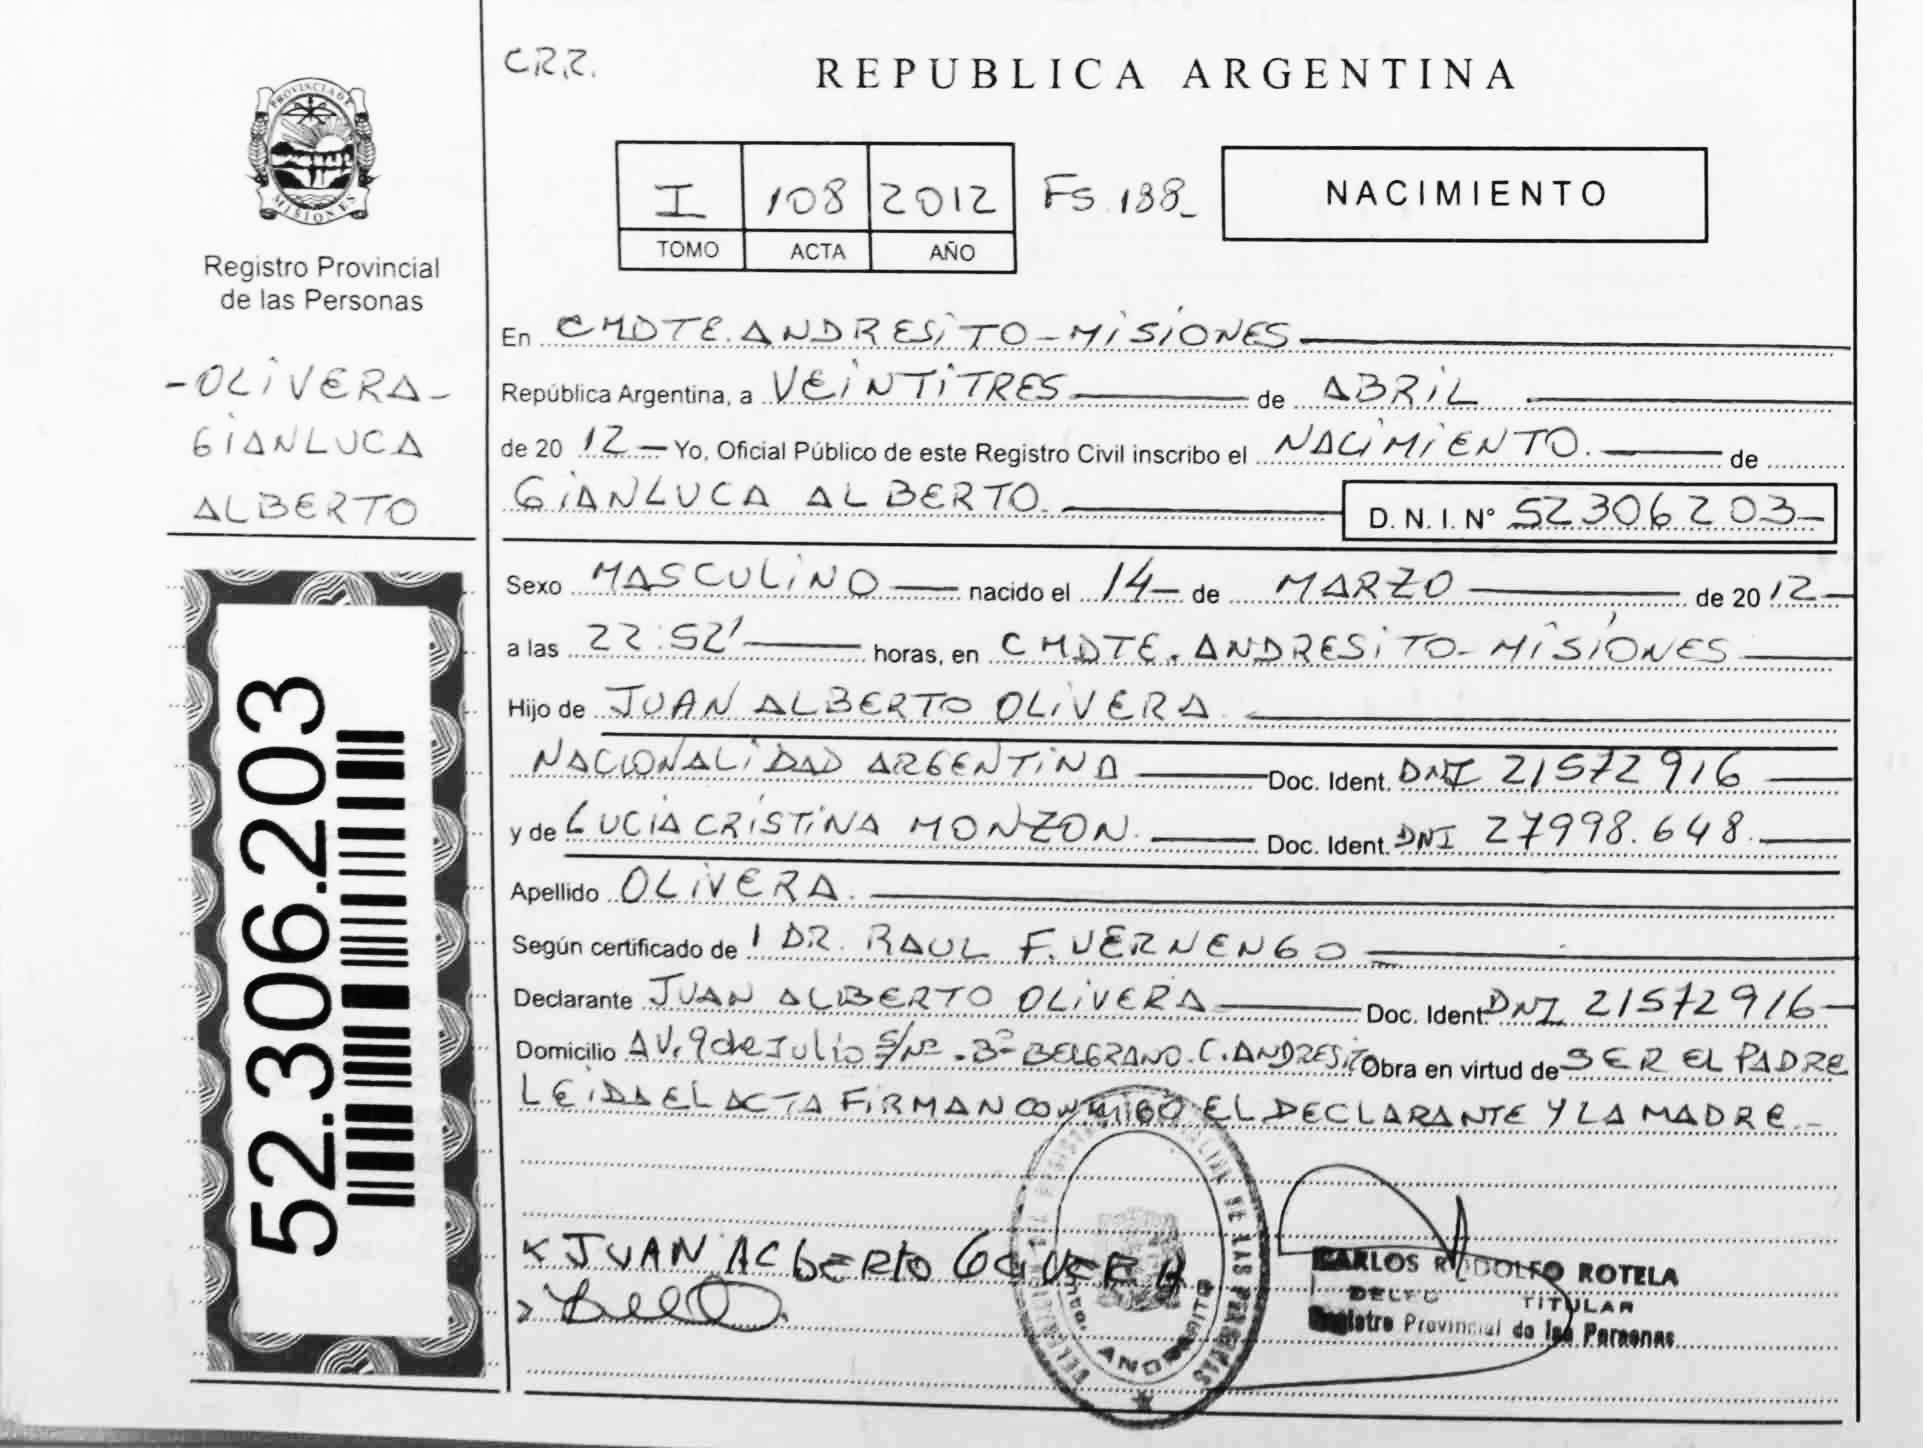 C.R.R.
REPUBLICA ARGENTINA
PROVINCIA DE
MISIONES
Registro Provincial
de las Personas
-OLIVERA-
GIANLUCA
ALBERTO
52.306.203
I 108 2012 Fs. 138_
TOMO ACTA AÑO
NACIMIENTO
En CMDTE. ANDRESITO-MISIONES
República Argentina, a VEINTITRES de ABRIL
de 20 12 - Yo, Oficial Público de este Registro Civil inscribo el NACIMIENTO. de
GIANLUCA ALBERTO. D. N. I. N° 52306203-
Sexo MASCULINO nacido el 14 - de MARZO de 20 12 -
a las 22:52' horas, en CMDTE. ANDRESITO-MISIONES
Hijo de JUAN ALBERTO OLIVERA
NACIONALIDAD ARGENTINA Doc. Ident. DNI 21572916
y de LUCIA CRISTINA MONZON. Doc. Ident. DNI 27998.648.
Apellido OLIVERA.
Según certificado de DR. RAUL F. VERNENGO
Declarante JUAN ALBERTO OLIVERA Doc. Ident. DNI 21572916
Domicilio AV. 9 de JULIO S/Nº. Bº BELGRANO. C. ANDRESITO Obra en virtud de SER EL PADRE
LEIDA EL ACTA FIRMAN CONMIGO EL DECLARANTE Y LA MADRE.-
JUAN ALBERTO
DE LAS PERSONAS
ANDRESITO
CARLOS RODOLFO ROTELA
TITULAR
Registro Provincial de las Personas